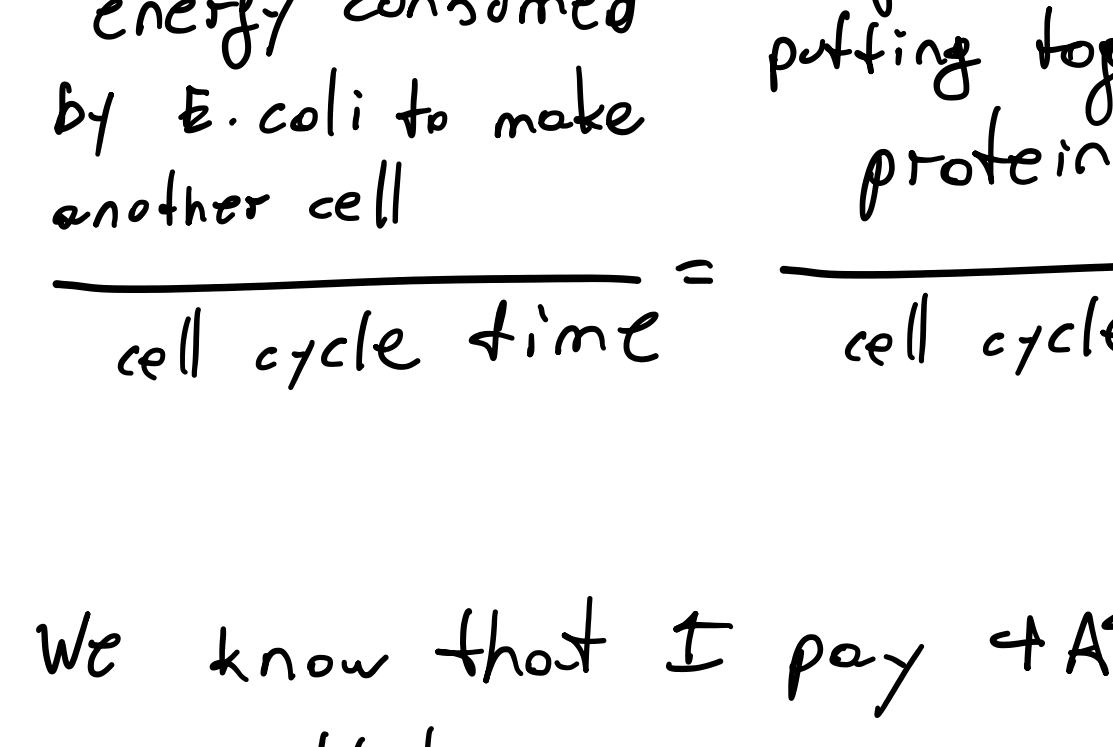 energy consumed
by E. coli to make
another cell
cell cycle time
=
putting
protein
cell
We know that I pay 4